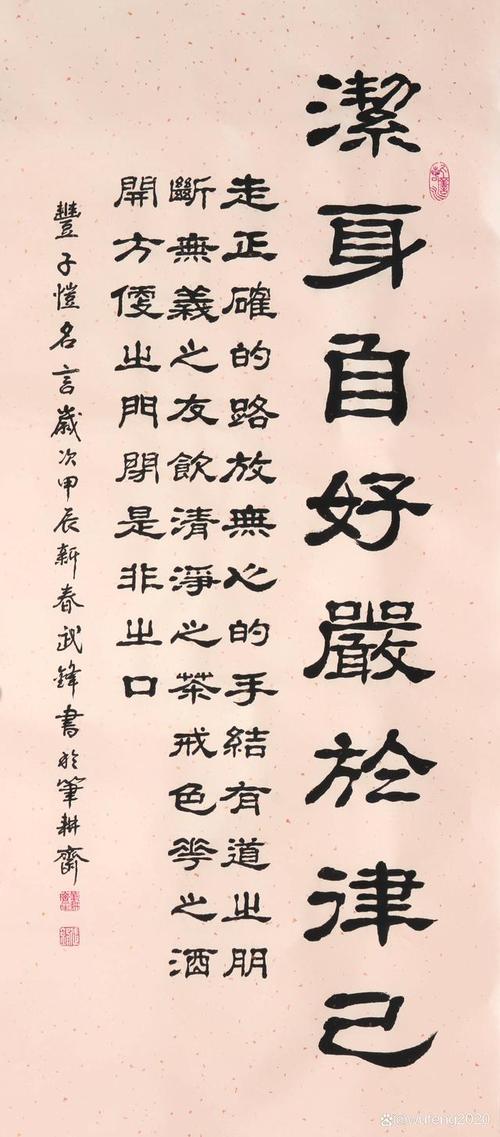 潔身自好嚴於律己
走正確的路放無心的手結有道之朋
斷無義之友飲清淨之茶戒色花之酒
開方便之門閉是非之口
豐子愷名言歲次甲辰新春武鋒書於筆耕齋